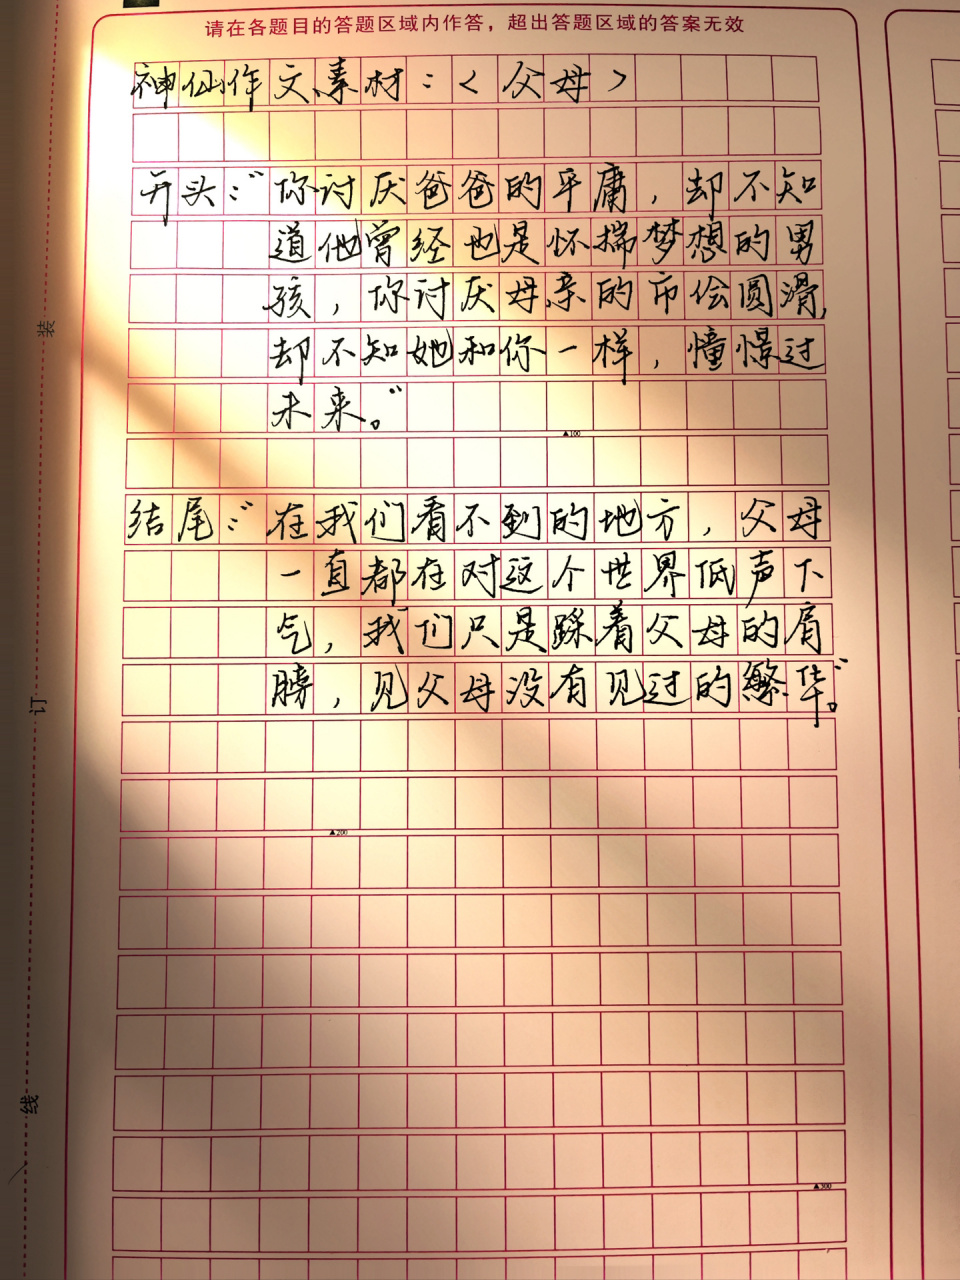 请在各题目的答题区域内作答，超出答题区域的答案无效
神仙作文素材：＜父母＞
开头：“你讨厌爸爸的平庸，却不知
道他曾经也是怀揣梦想的男
孩，你讨厌母亲的市侩圆滑，
却不知她和你一样，憧憬过
未来。”
▲100
结尾：“在我们看不到的地方，父母
一直都在对这个世界低声下
气，我们只是踩着父母的肩
膀，见父母没有见过的繁华。”
▲200
▲300
装
订
线